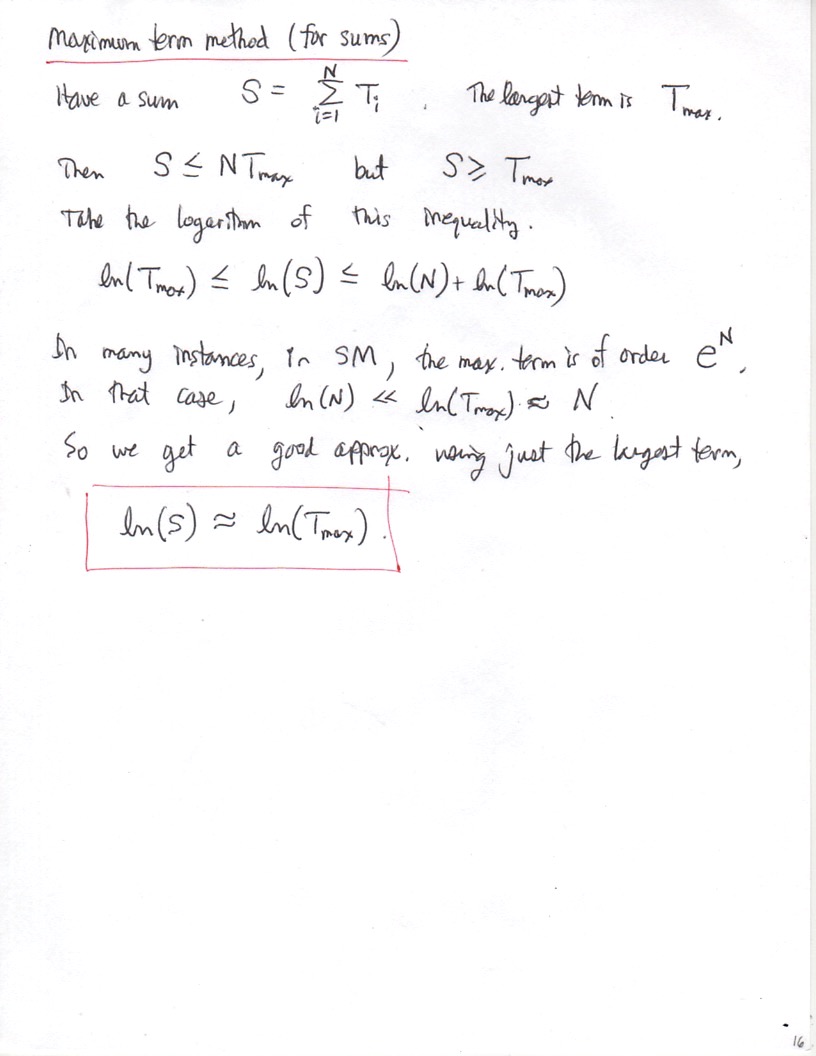 Maximum term method (for sums)
Have a sum S = ∑_{i=1}^{N} T_i . The largest term is T_max.
Then S ≤ N T_max but S ≥ T_max
Take the logarithm of this inequality.
ln(T_max) ≤ ln(S) ≤ ln(N) + ln(T_max)
In many instances, in SM, the max. term is of order e^N.
In that case, ln(N) << ln(T_max) ≈ N.
So we get a good approx. using just the largest term,
ln(S) ≈ ln(T_max).
16